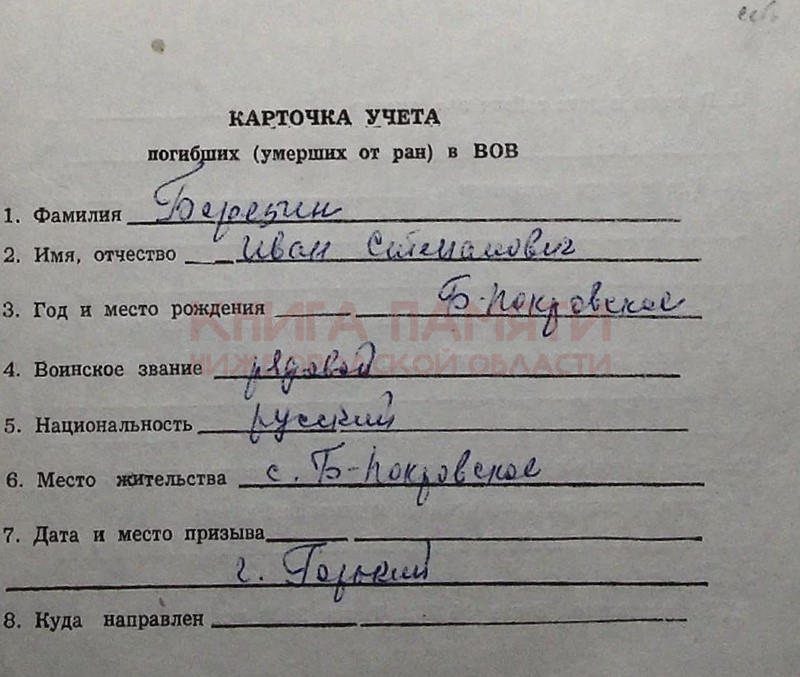 КАРТОЧКА УЧЕТА
погибших (умерших от ран) в ВОВ
1. Фамилия Березин
2. Имя, отчество Иван Степанович
3. Год и место рождения Б-Покровское
КНИГА ПАМЯТИ
НИЖЕГОРОДСКОЙ ОБЛАСТИ
4. Воинское звание рядовой
5. Национальность русский
6. Место жительства с. Б-Покровское
7. Дата и место призыва
г. Горький
8. Куда направлен